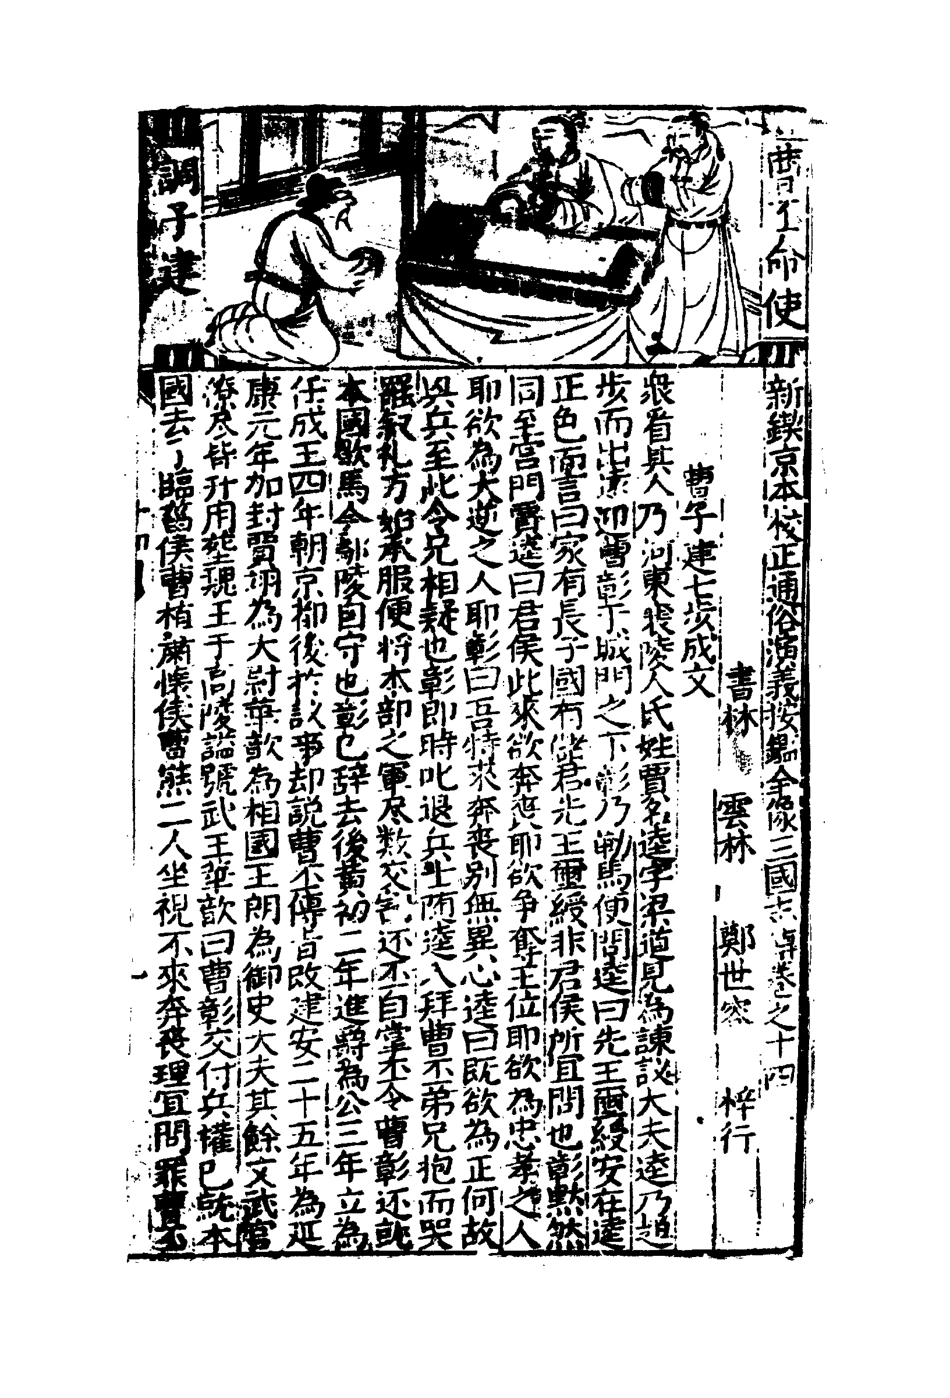 曹丕命使
調子建
新鍥京本校正通俗演義按鑑全像三國志傳卷之十四
書林 雲林 鄭世容 梓行
曹子建七步成文
衆看其人乃河東襄陵人氏姓賈名逵字梁道見為諫議大夫逵乃趨
步而出逵迎曹彰于城門之下彰乃勒馬便問逵曰先王璽綬安在逵
正色而言曰家有長子國有儲君先王璽綬非君侯所宜問也彰黙然
同至宮門賈逵曰君侯此來欲奔喪耶欲争奪王位耶欲為忠孝之人
耶欲為大逆之人耶彰曰吾特來奔喪別無異心逵曰既欲為正何故
與兵至此令兄相疑也彰即時叱退兵士隨逵入拜曹丕弟兄抱而哭
罷叙礼方始承服便將本部之軍尽数交割还丕自掌丕令曹彰还
本國歇馬令鄢陵自守也彰乃辞去後黄初二年進爵為公三年立為
任成王四年朝京抑後於議事却説曹丕傳旨改建安二十五年為延
康元年加封賈詡為大尉華歆為相國王朗為御史大夫其餘文武官
僚尽皆升用塟魏王于高陵諡號武王華歆曰曹彰交付兵權已 本
國去了臨舊侯曹植蕭懐侯曹熊二人坐視不來奔喪理宜問罪曹丕